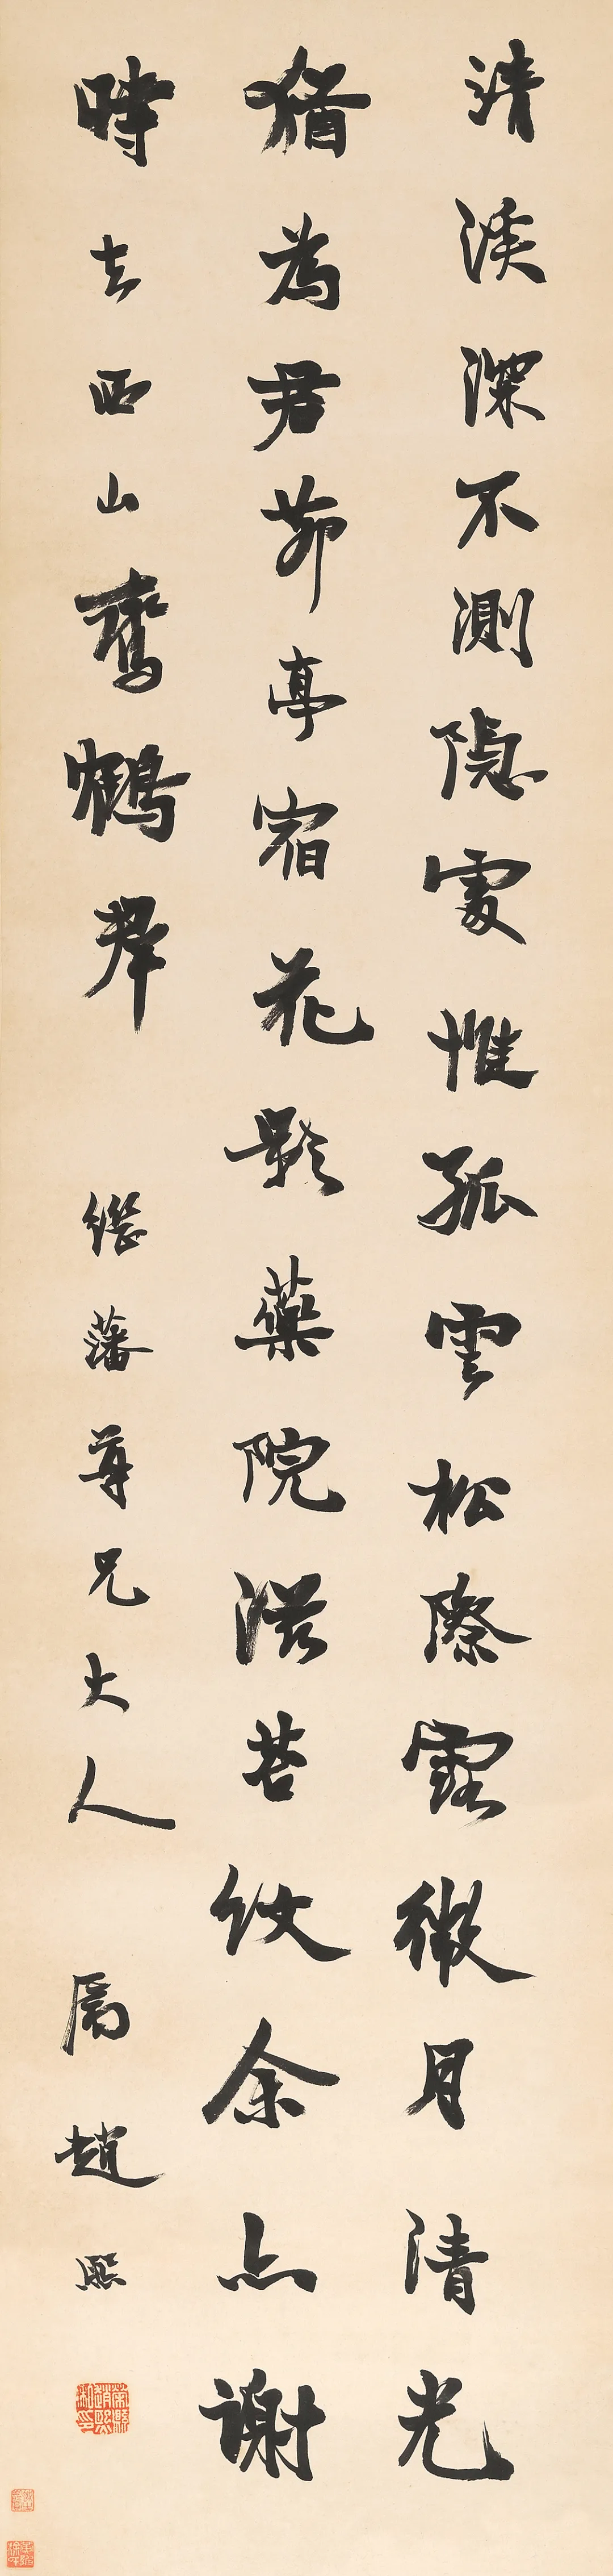 清溪深不測隱處惟孤雲松際露微月清光
猶為君茆亭宿花影藥院滋苔紋余亦謝
時去西山鸞鶴羣 藩尊兄大人 屬 趙熙